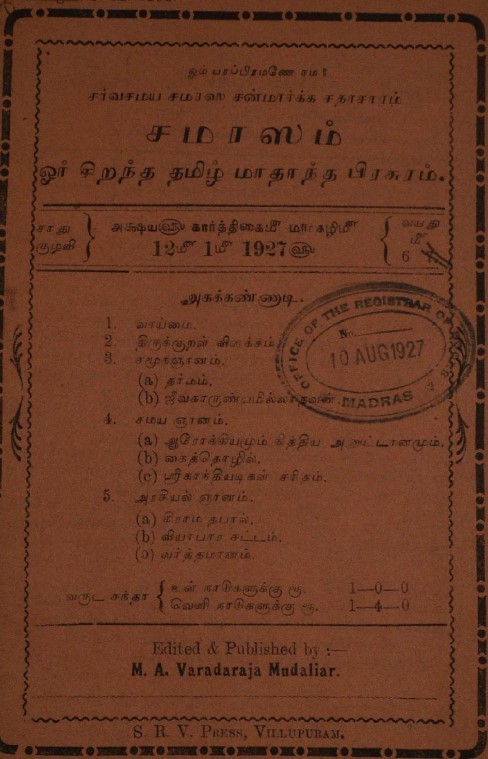 ஓம் பரப்பிரமணே நம
சர்வசமய சமரஸ சன்மார்க்க சதாசாரம்
சமரஸம்
ஓர் சிறந்த தமிழ் மாதாந்த பிரசுரம்.
சாது குழவி
அக்ஷய௵ கார்த்திகை௴ மார்கழி௴
12௴ 1௴ 1927௵
வயது ௴ 6
அகக்கண்ணாடி.
1. வாய்மை.
2. திருக்குறள் விளக்கம்
3. சமூகஞானம்.
(a) தர்மம்.
(b) ஜீவகாருண்யமில்லாதவன்
4. சமய ஞானம்.
(a) ஆரோக்கியமும் நித்திய அனுட்டானமும்.
(b) கைத்தொழில்.
(c) ஸ்ரீகாந்தியடிகள் சரிதம்.
5. அரசியல் ஞானம்.
(a) கிராம தபால்.
(b) வியாபார சட்டம்.
(c) வர்த்தமானம்.
வருட சந்தா
உள் நாடுகளுக்கு ரூ. 1—0—0
வெளி நாடுகளுக்கு ரூ. 1—4—0
OFFICE OF THE REGISTRAR OF
No.
10 AUG 1927
MADRAS
Edited & Published by :—
M. A. Varadaraja Mudaliar.
S. R. V. PRESS, VILLUPURAM.